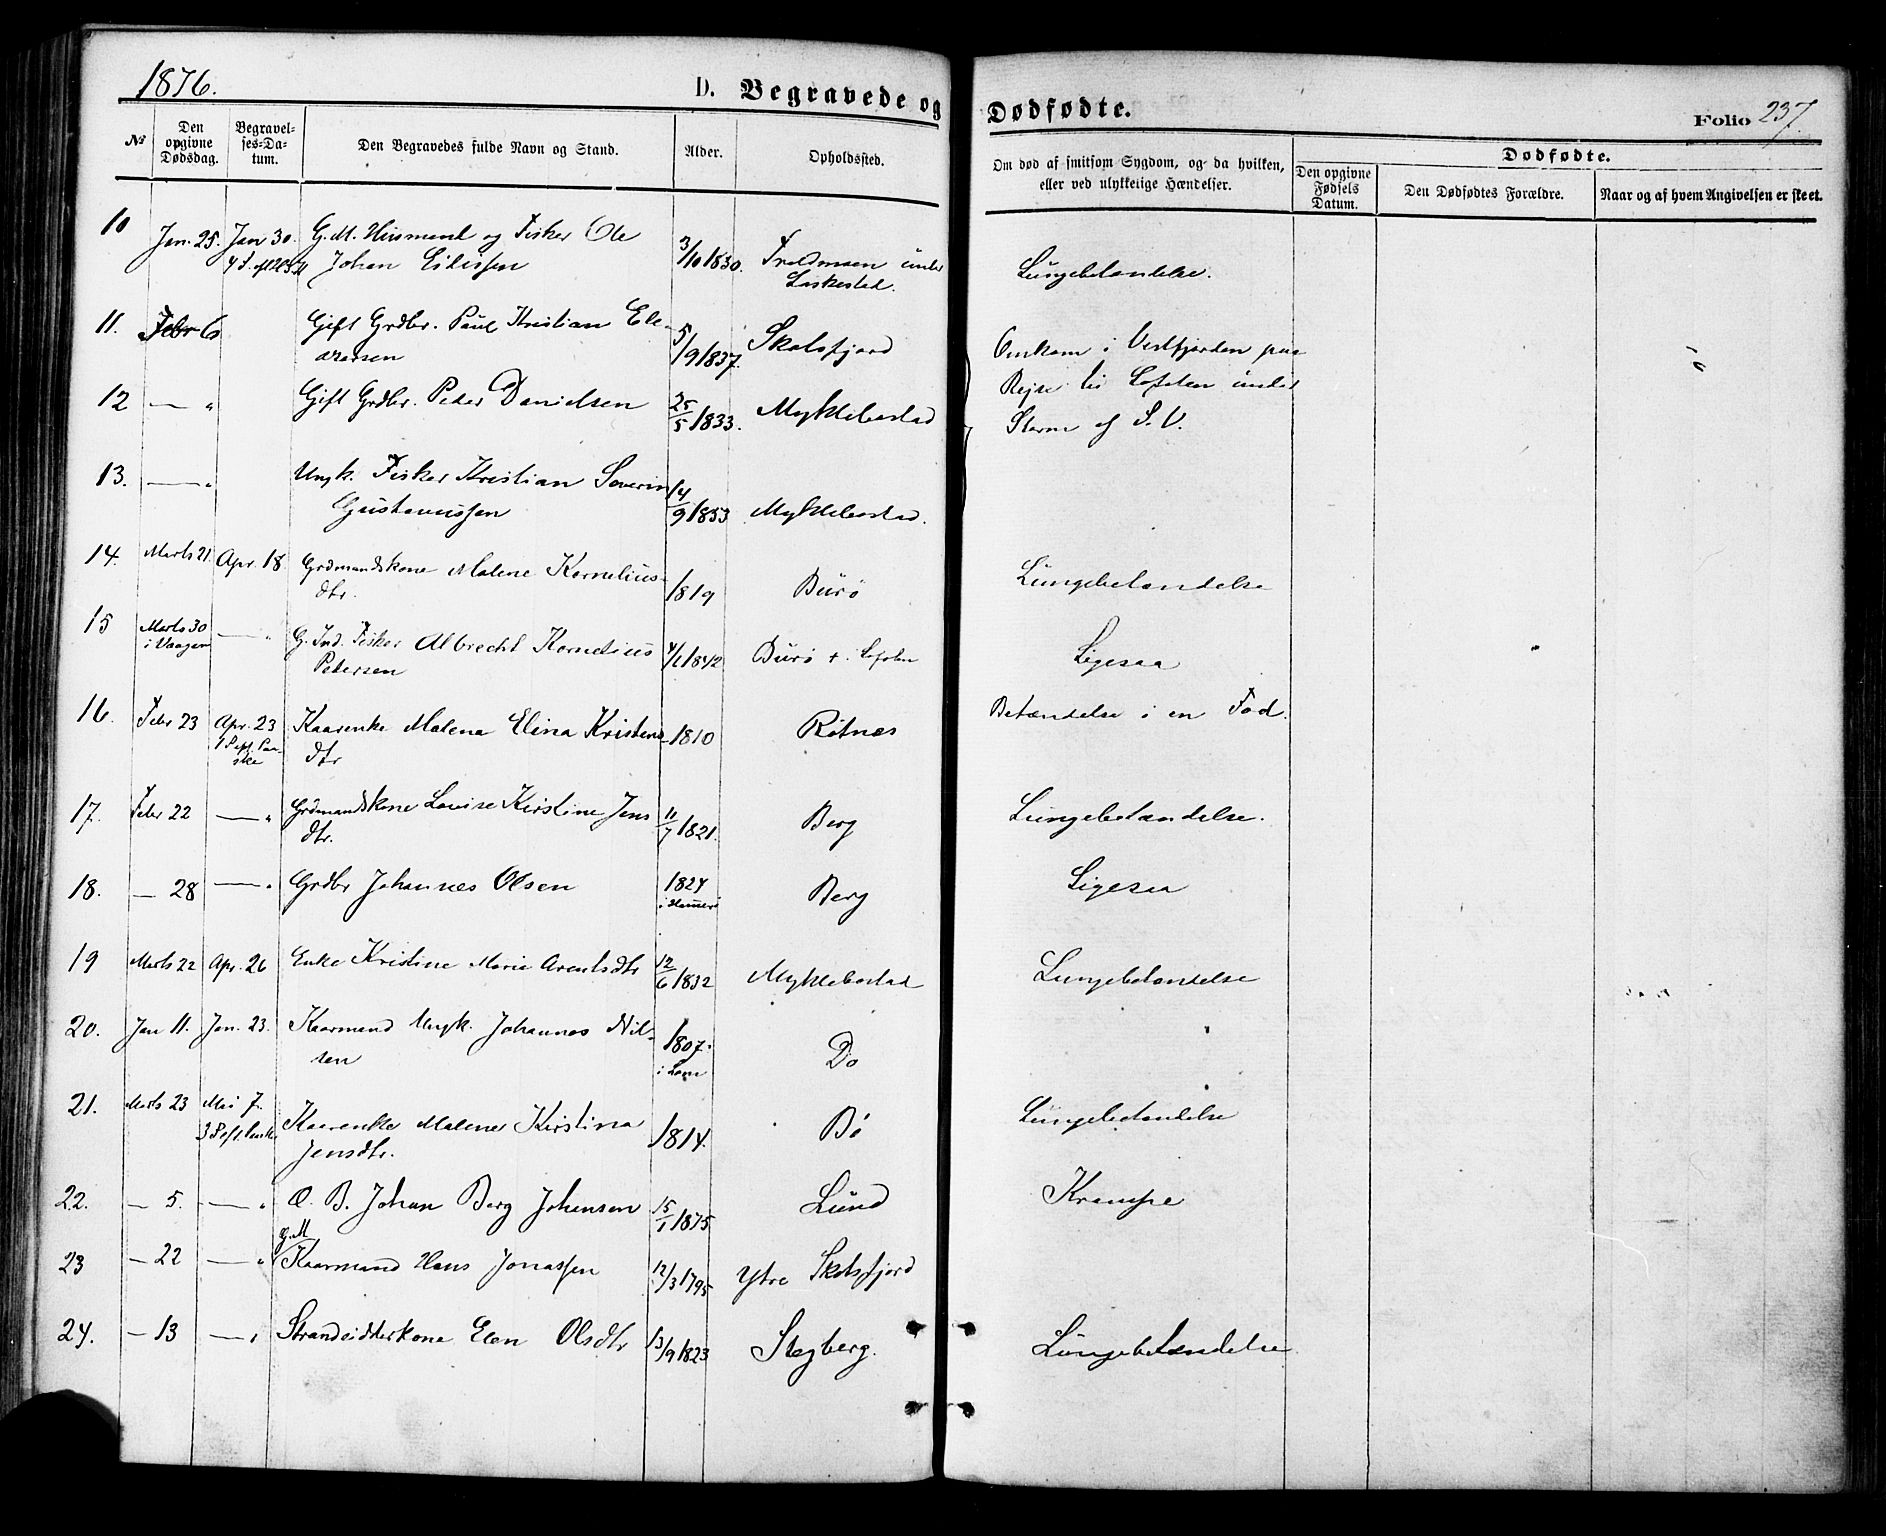 1876.
D. Begravede og Dødfødte.
Folio 237.
№
Den opgivne Dødsdag.
Begravelses-Datum.
Den Begravedes fulde Navn og Stand.
Alder.
Opholdssted.
Om død af smitsom Sygdom, og da hvilken, eller ved ulykkelige Hændelser.
Dødfødte.
Den opgivne Fødsels Datum.
Den Dødfødtes Forældre.
Naar og af hvem Angivelsen er skeet.
10 Jan. 25. Jan 30. G. M. Husmand og Fisker Ole 3/10 1830. under Lungebetændelse.
Johan
11. Febr 6 Gift Grdbr. Paul Kristian Ele- 5/9 1837. Skotsfjord Omkom i Vestfjorden paa
Rejse til Lofoten under
12 — " Gift Grdbr. Peder Danielsen 25/5 1833. Myklebostad Storm af S.V.
13. — " Ungk. Fisker Kristian Severin 14/9 1853 Myklebostad.
Gustavussen
14. Marts 21 Apr. 18 Grdmandskone Malene Kornelius- 1819 Burø Lungebetændelse
dtr.
15 Marts 30 — " G. Ind. Fisker Albrecht Kornelius 4/1 1842 Burø + i Lofoten Ligesaa
i Vaagen Petersen
16. Febr 23 Apr. 23 Kaarenke Malena Elina Kristens- 1810 Røtnes Betændelse i en Fod.
1 S. eft. Paaske dtr
17. Febr 22 — " Grdmandskone Lovise Kirstine Jens 11/7 1821. Berg Lungebetændelse.
dtr.
18. — 28 — " Grdbr Johannes Olsen 1824 Berg Ligesaa
i Hamerø
19 Marts 22 Apr. 26 Enke Kristine Marie Arentsdtr 12/6 1832 Myklebostad Lungebetændelse
20. Jan 11. Jan. 23. Kaarmand Ungk. Johannes Nil- 1807. Do
sen i Lom
21. Marts 23 Mai 7. Kaarenke Malene Kirstina 1814. Bø Lungebetændelse
3 S. eft. Paaske Jensdtr.
22. — 5. — " Æ. B. Johan Berg Johansen 15/1 1875 Lund Krampe
G. M
23 — 22 — " Kaarmand Hans Jonassen 12/3 1795 Ytre Skotsfjord
24. — 13 — " Strandsidderkone Elen Olsdtr 13/9 1823 Stegberg. Lungebetændelse